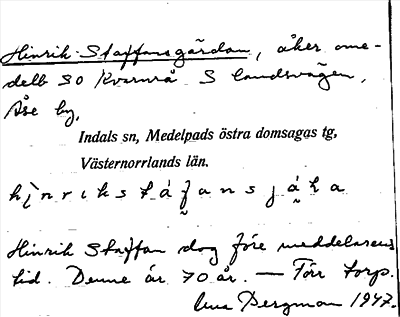 Hinrik-Staffansgårdan, åker ome-
delb SO Kvarnrå S landsvägen,
Åse by,
Indals sn, Medelpads östra domsagas tg,
Västernorrlands län.
Hinrik Staffan dog före meddelarens
tid. Denne är 70 år. — Förr torp.
Bergman 1947.